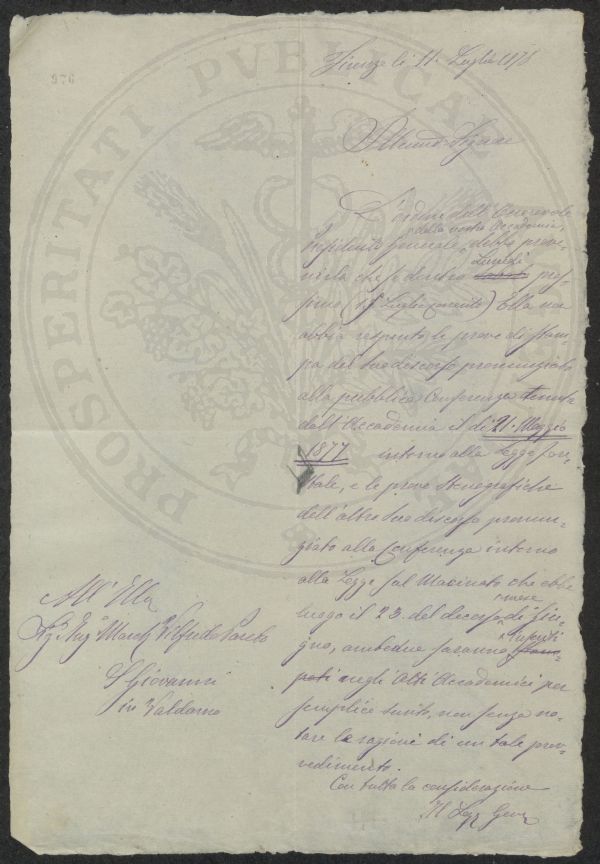 976
PROSPERITATI PVBLICAE
Firenze li 11. Luglio 1878
D'ordine dell'Onorevole
della nostra Accademia,
Presidente Generale, debbo preve-
nirla che se dentro Lunedì pros-
simo (15 Luglio corrente) Ella non
abbia respinto le prove di stam-
pa del suo discorso pronunziato
alla pubblica Conferenza tenuta
dall'Accademia il dì 21. Maggio
1877 intorno alla Legge fore-
stale, e le prove stenografiche
dell'altro suo discorso pronun-
ziato alla Conferenza intorno
alla Legge sul Macinato che ebbe
luogo il 23. del decorso mese di Giu-
gno, ambedue saranno inseriti
negli Atti Accademici per
semplice sunto, non senza no-
tare la ragione di un tale prov-
vedimento.
Con tutta la considerazione
Il Seg Gen
All' Ill
Sig. Ing March Vilfredo Pareto
S Giovanni
in Valdarno